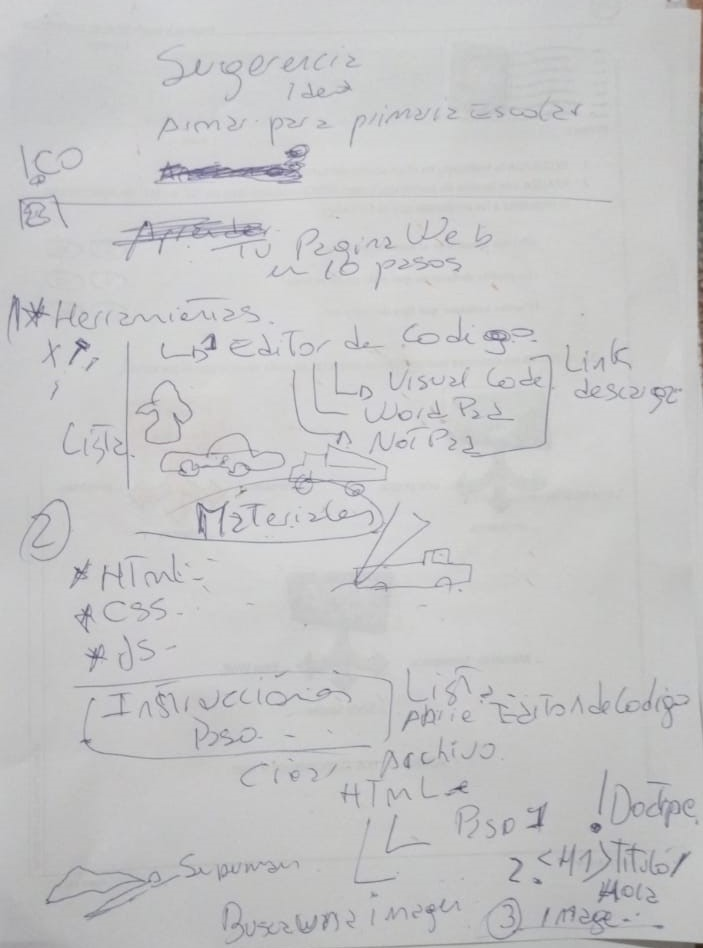 Sugerencia
Idea
Armar para primaria Escolar
ICO
Aprender Tu Pagina Web
en 10 pasos
1 * Herramientas.
1 Editor de Codigo
Visual Code
Word Pad
NotPad
Link
descarga
Lista
2
Materiales
* HTML -
* CSS -
* JS -
Instrucciónes
Paso - -
Lista
Abrir Editor de Codigo
Crear Archivo
HTML
Paso 1 ! Doctype
2. <H1> Titulo /
Hola
Superman
Busca una imagen
3 image - -